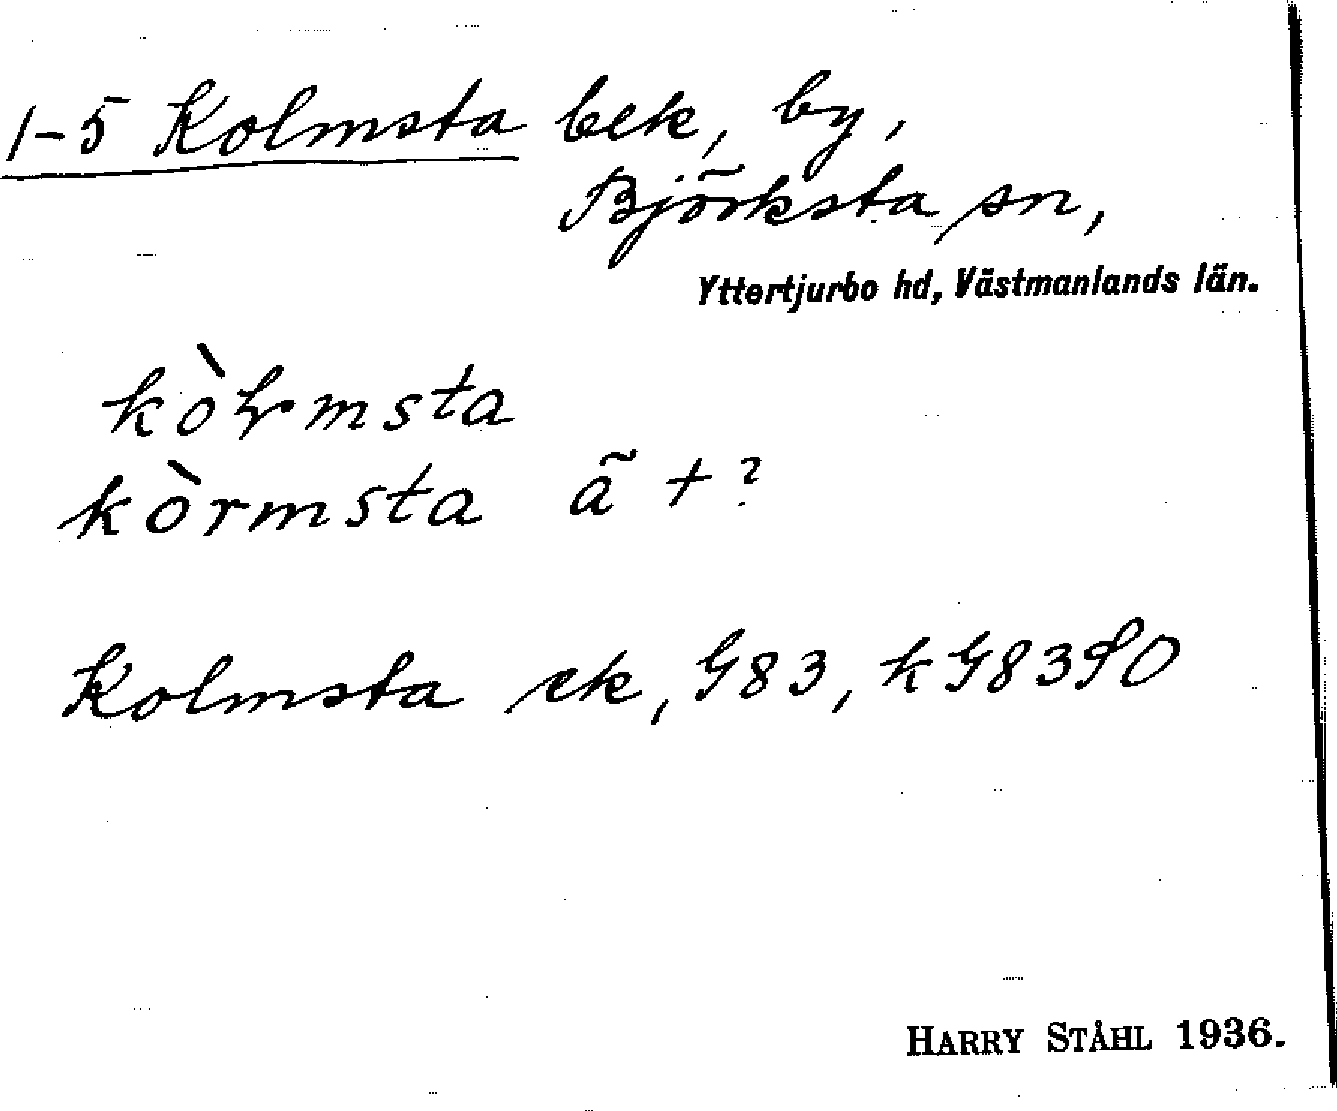 1-5 Kolmsta bek, by,
Björksta sn,
Yttertjurbo hd, Västmanlands län.
kòɽmsta
kòrmsta ã + ?
Kolmsta ek, G83, kG83SO
HARRY STÅHL 1936.